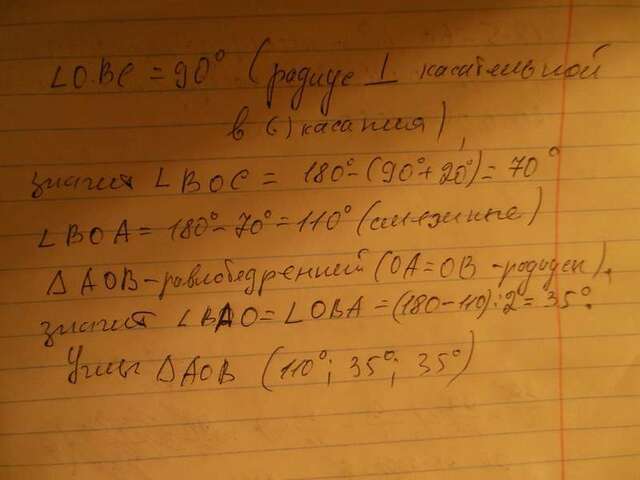 ∠OBC = 90° (радиус ⊥ касательной
в (·) касания),
значит ∠BOC = 180° - (90° + 20°) = 70°
∠BOA = 180° - 70° = 110° (смежные)
△AOB - равнобедренний (OA = OB - радиуси),
значит ∠BAO = ∠OBA = (180 - 110) : 2 = 35°.
Углы △AOB (110°; 35°; 35°)